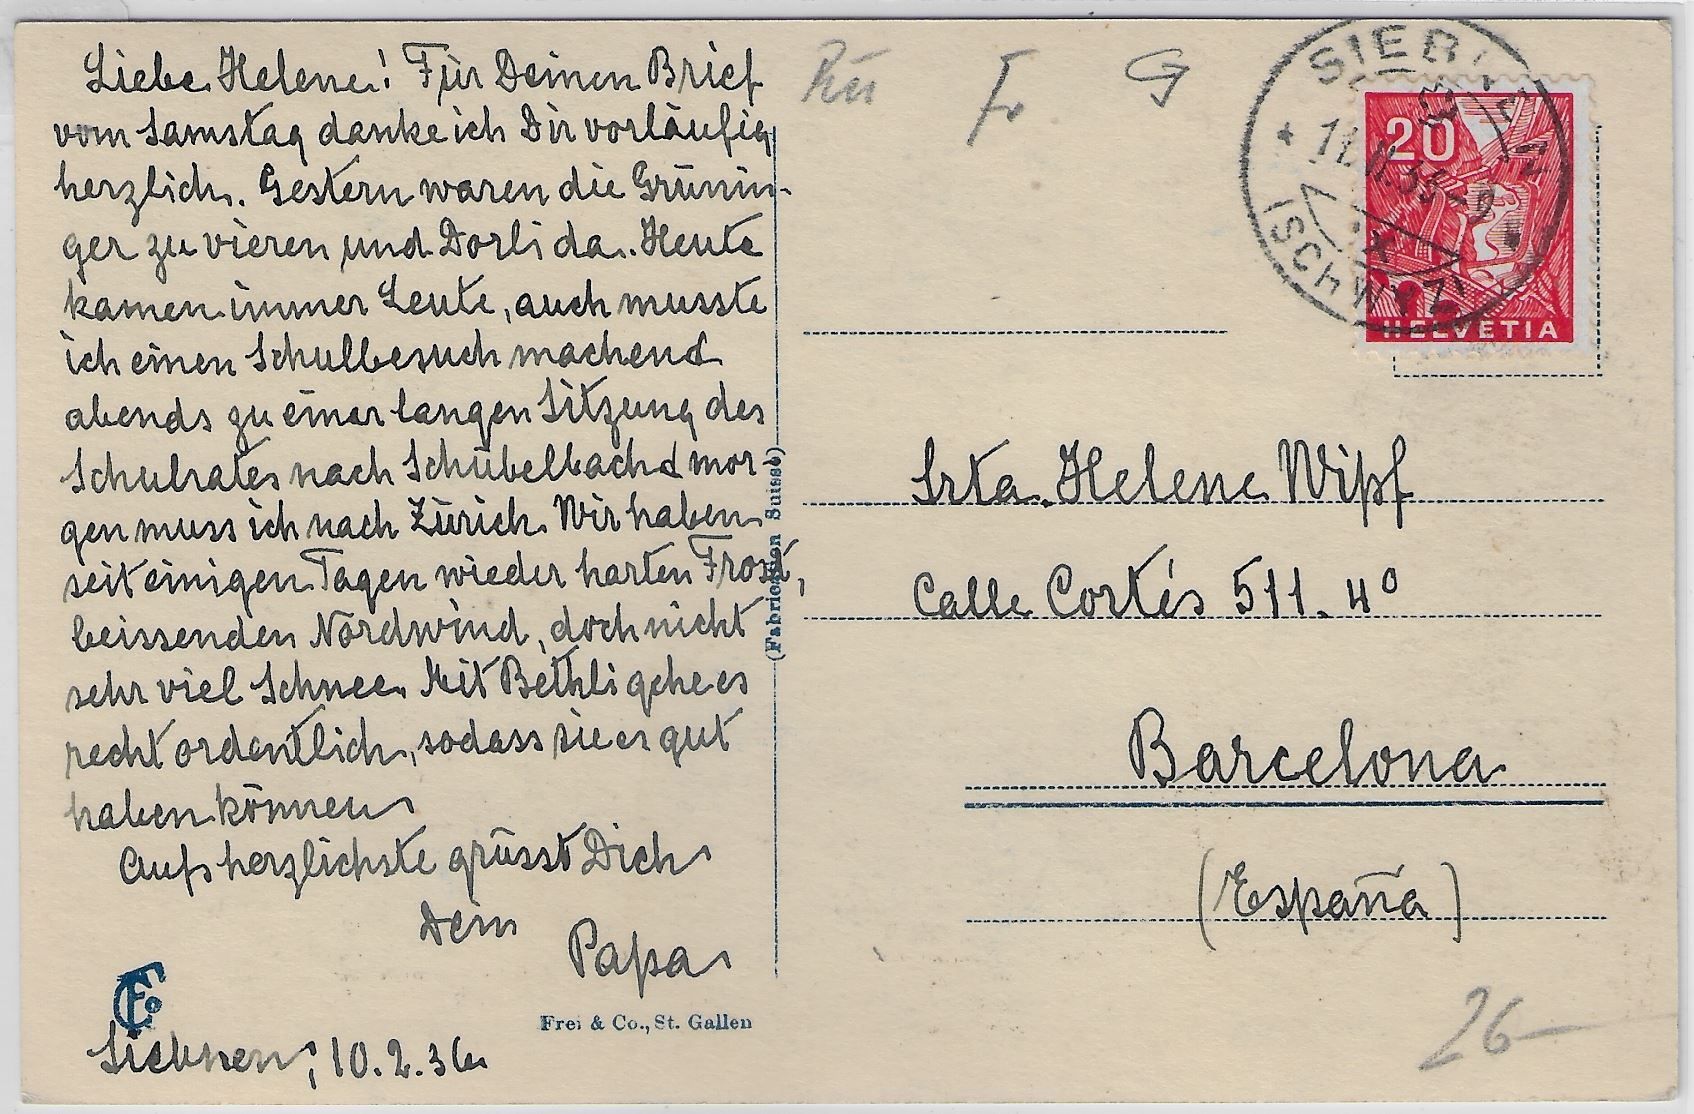 Liebe Helene! Für Deinen Brief
vom Samstag danke ich Dir vorläufig
herzlich. Gestern waren die Grünin-
ger zu vieren und Dorli da. Heute
kamen immer Leute, auch musste
ich einen Schulbesuch machen &
abends zu einer langen Sitzung des
Schulrates nach Schübelbach & mor-
gen muss ich nach Zürich. Wir haben
seit einigen Tagen wieder harten Frost,
beissenden Nordwind, doch nicht
sehr viel Schnee. Mit Bethli gehe es
recht ordentlich, sodass sie es gut
haben können.
Aufs herzlichste grüsst Dich
Dein
Papa
Siebnen, 10.2.36
Frei & Co., St. Gallen
(Fabrication Suisse)
Fr
SIEBNEN
(SCHWYZ)
20
HELVETIA
Srta. Helene Wipf
Calle Cortés 511. 4º
Barcelona
(España)
26-